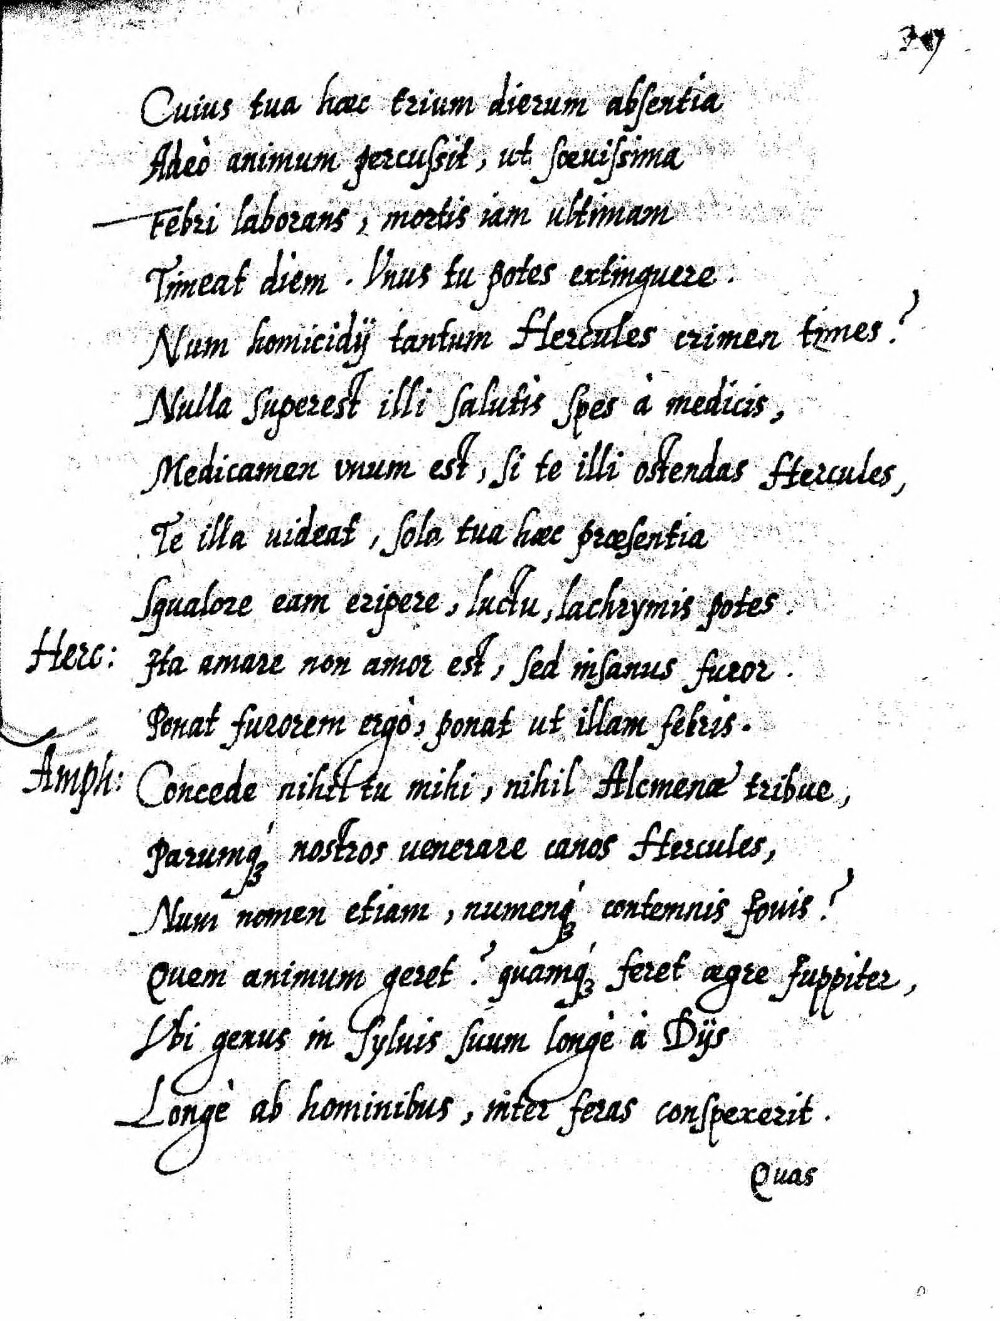 Cuius tua hæc trium dierum absentia
Adeò animum percussit, ut sæuissima
Febri laborans, mortis iam ultimam
Timeat diem. Vnus tu potes extinguere.
Num homicidij tantum Hercules crimen times?
Nulla superest illi salutis spes à medicis,
Medicamen vnum est, si te illi ostendas Hercules,
Te illa uideat, sola tua hæc præsentia
Squalore eam eripere, luctu, lachrymis potes.
Herc: Ita amare non amor est, sed insanus furor.
Ponat furorem ergò, ponat ut illam febris.
Amph: Concede nihil tu mihi, nihil Alcmenæ tribue,
Parumq́; nostros uenerare canos Hercules,
Num nomen etiam, numenq́; contemnis Iouis?
Quem animum geret? quamq́; feret ægre Iuppiter,
Vbi genus in syluis suum longè à Dijs
Longè ab hominibus, inter feras conspexerit.
Quas